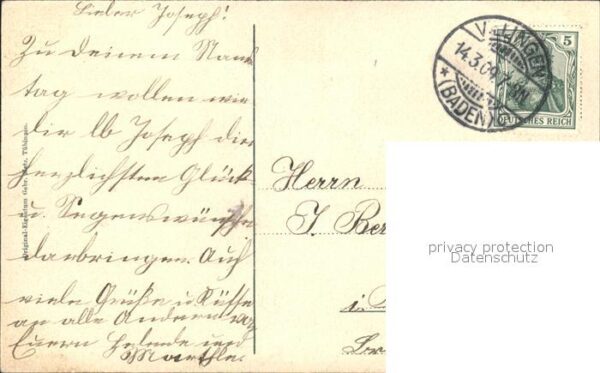 Lieber Joseph!
Zu deinem Namens
tag wollen wir
dir lb Joseph die
herzlichsten Glück
u. Segenswünsche
darbringen. Auch
viele Grüße u Küsse
an alle Andern von
Euern Helende und
Marthle
Original-Eigentum Gebr. Metz, Tübingen.
VILLINGEN
14.3.09.
* (BADEN)
5
DEUTSCHES REICH
Herrn
J. Ber
i.
privacy protection
Datenschutz